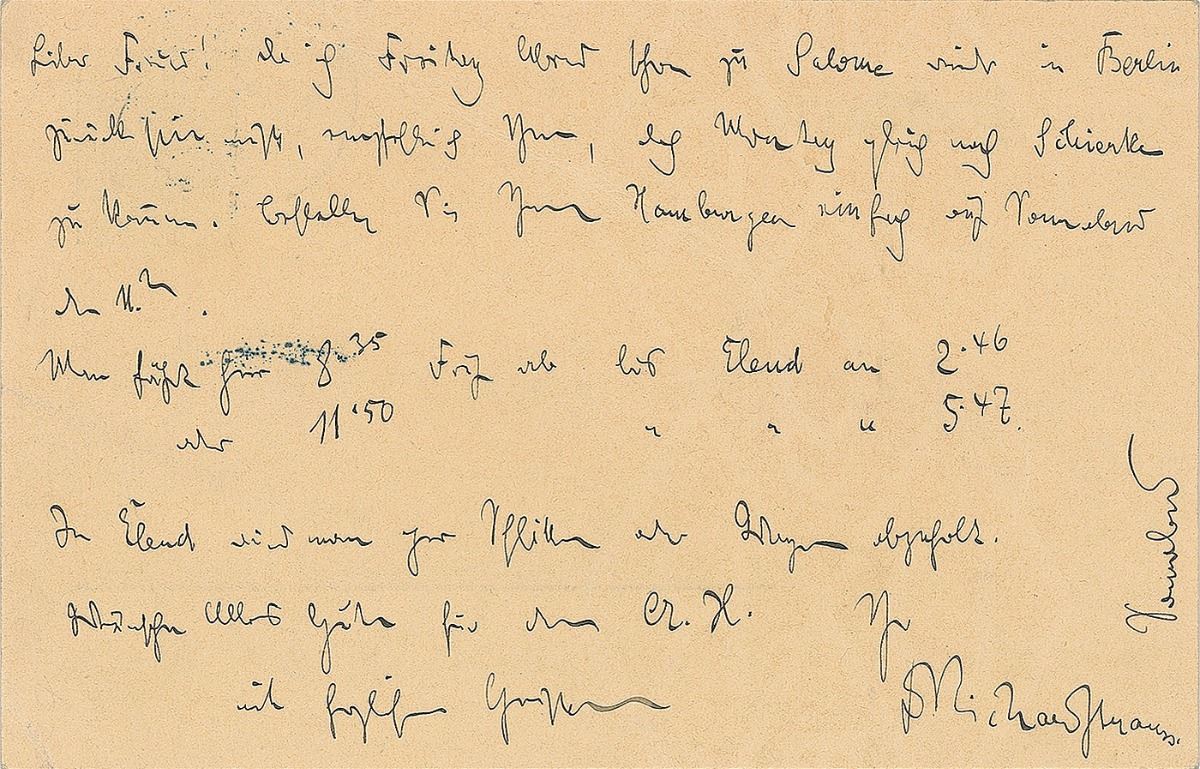 Lieber Freund! da ich Freitag Abend schon zu Salome wieder in Berlin
zurück sein muß, empfehle ich Ihnen, doch Montag gleich nach Schierke
zu kommen. Bestellen Sie Ihren Hamburger einfach auf Sonnabend
den 11.ten.
Man fährt hier 8.35 Früh ab bis Elend an 2.46
oder 11.50 " " " 5.47.
In Elend wird man per Schlitten oder Wagen abgeholt.
Wünsche Alles Gute für den H.
Ihr
mit herzlichen Grüßen
DrRichardStrauss.
Sonnabend